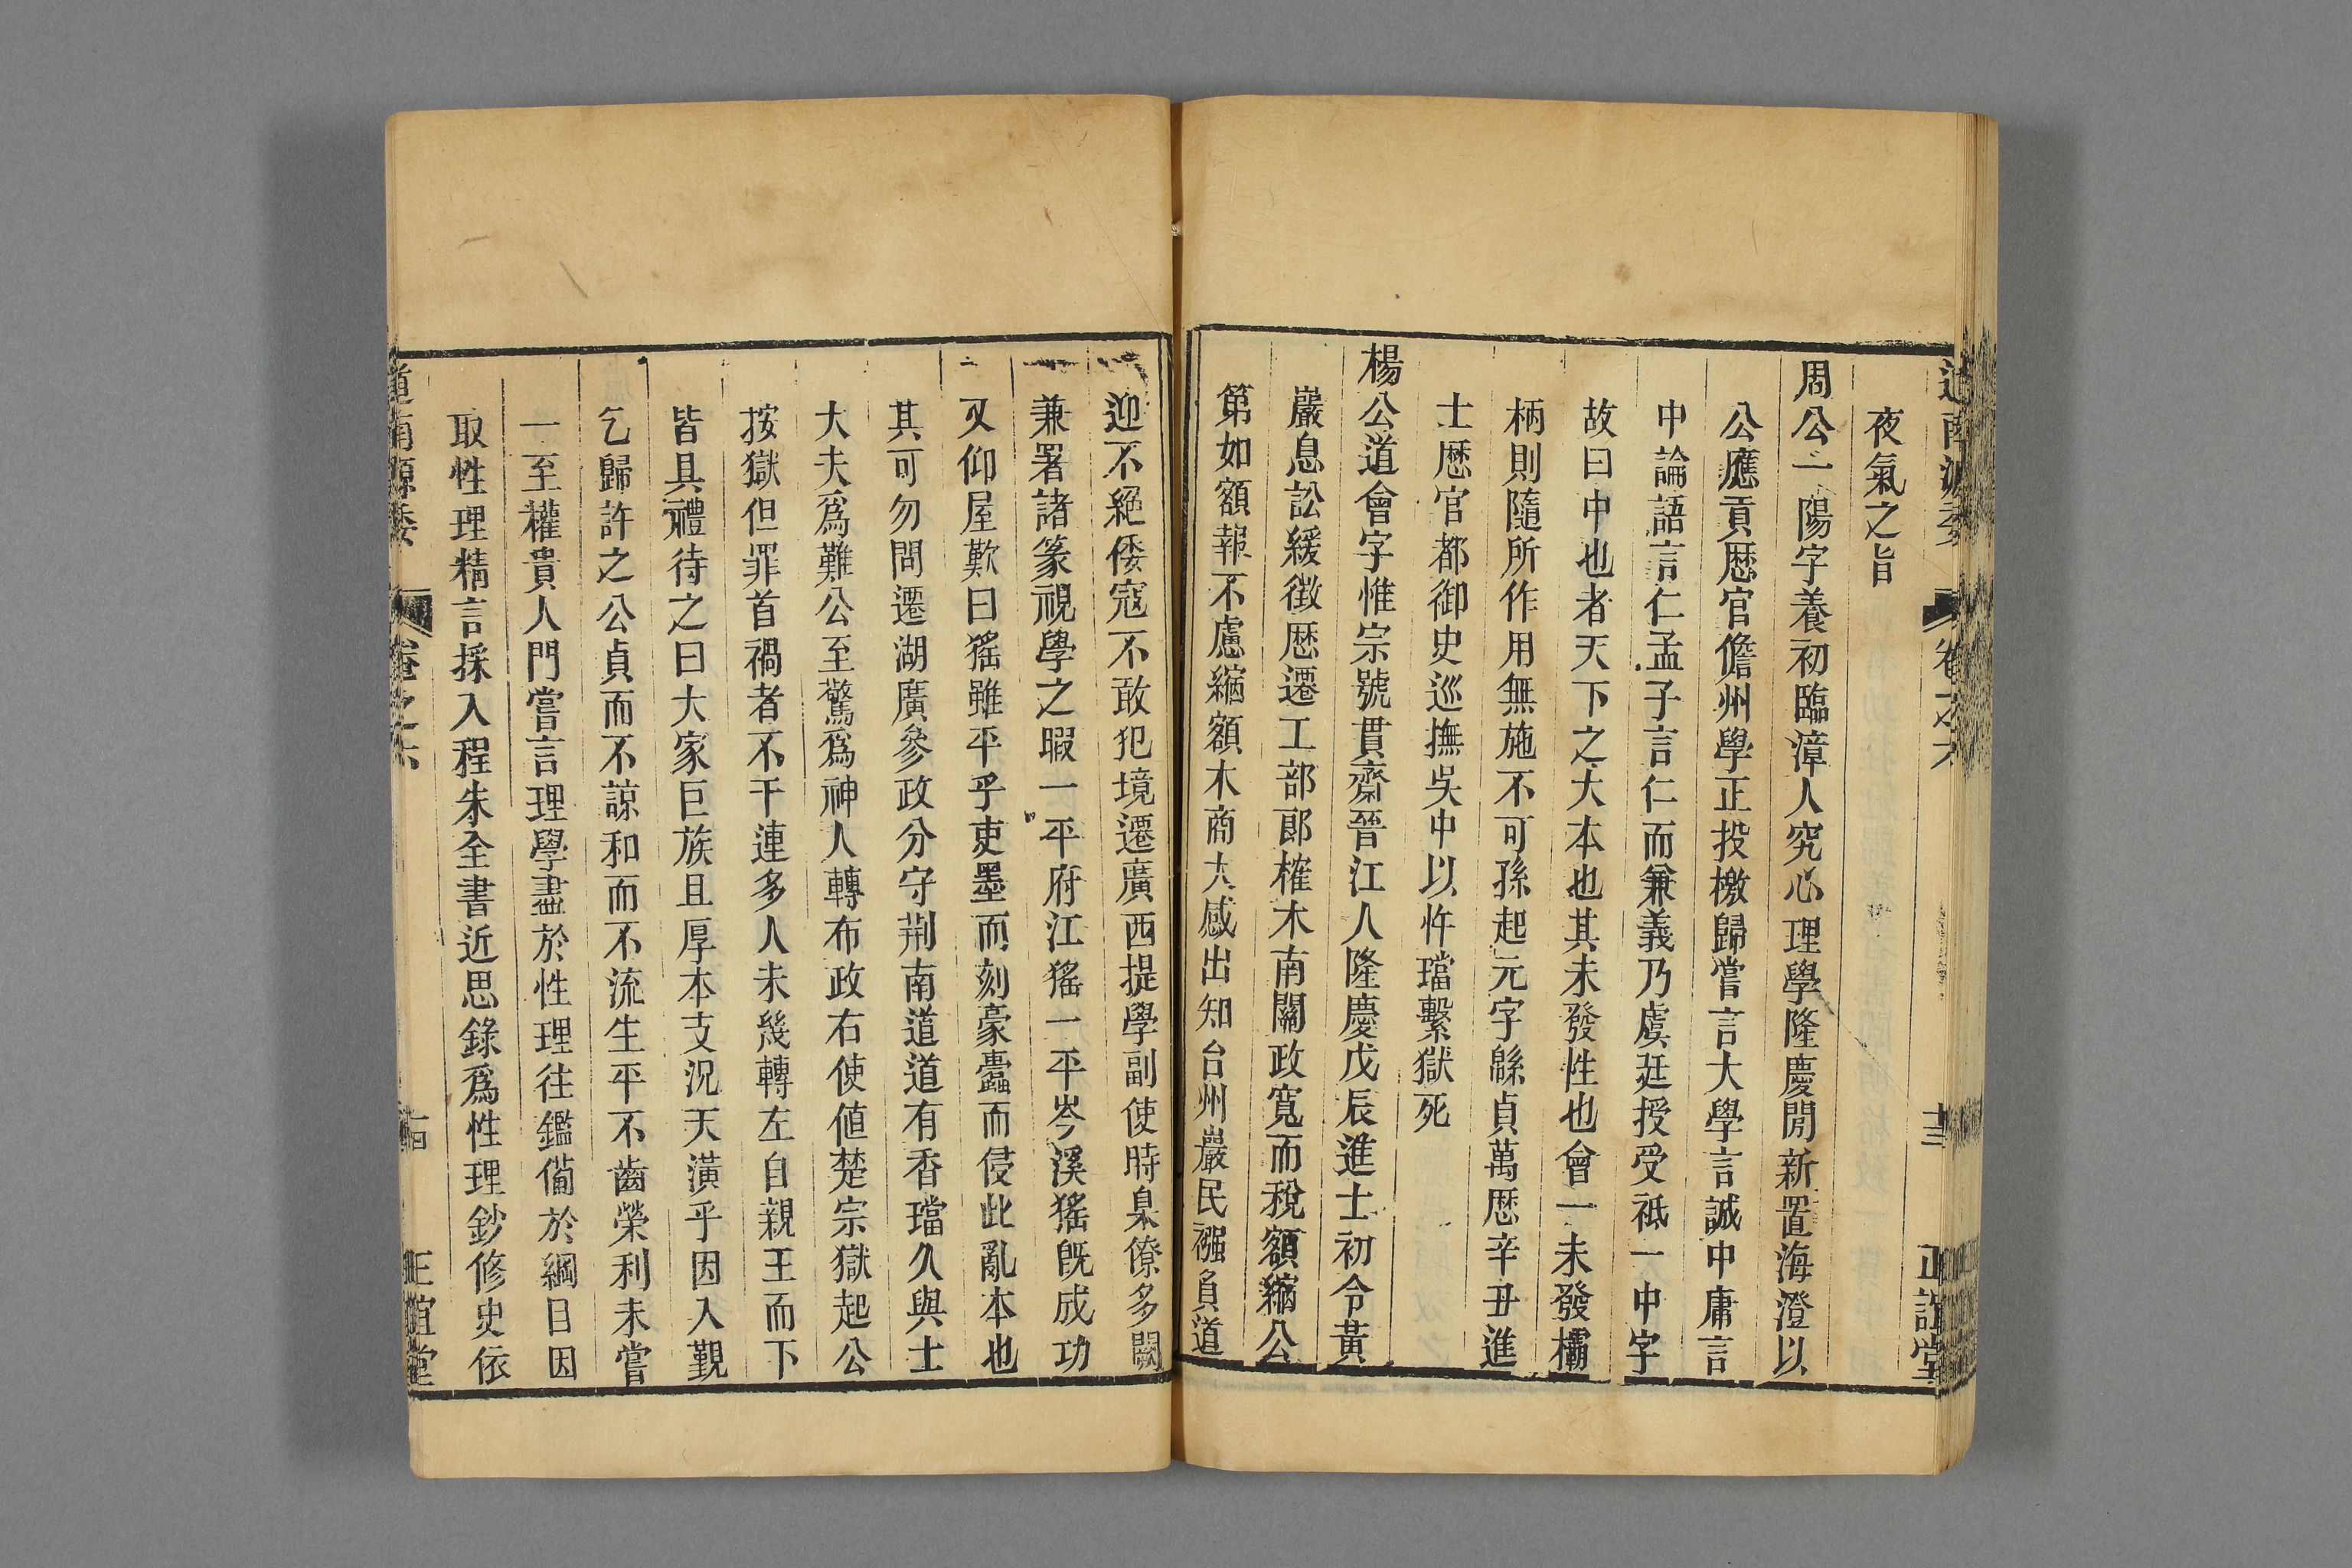 道南源委 卷之六 十三 正誼堂
夜氣之旨
周公一陽字養初臨漳人究心理學隆慶閒新置海澄以
公應貢歷官儋州學正投檄歸嘗言大學言誠中庸言
中論語言仁孟子言仁而兼義乃虞廷授受祗一中字
故曰中也者天下之大本也其未發性也會一未發欛
柄則隨所作用無施不可孫起元字緜貞萬歷辛丑進
士歷官都御史巡撫吳中以忤璫繫獄死
楊公道會字惟宗號貫齋晉江人隆慶戊辰進士初令黃
巖息訟緩徵歷遷工部郞榷木南關政寬而稅額縮公
第如額報不慮縮額木商大感出知台州巖民襁負道
迎不絕倭寇不敢犯境遷廣西提學副使時臬僚多闕
兼署諸篆視學之暇一平府江猺一平岑溪猺旣成功
又仰屋歎曰猺雖平乎吏墨而刻豪蠹而侵此亂本也
其可勿問遷湖廣參政分守荆南道道有香璫久與士
大夫爲難公至驚爲神人轉布政右使値楚宗獄起公
按獄但罪首禍者不干連多人未幾轉左自親王而下
皆具禮待之曰大家巨族且厚本支況天潢乎因入覲
乞歸許之公貞而不諒和而不流生平不齒榮利未嘗
一至權貴人門嘗言理學盡於性理往鑑僃於綱目因
取性理精言採入程朱全書近思錄爲性理鈔修史依
道南源委 卷之六 十四 正誼堂